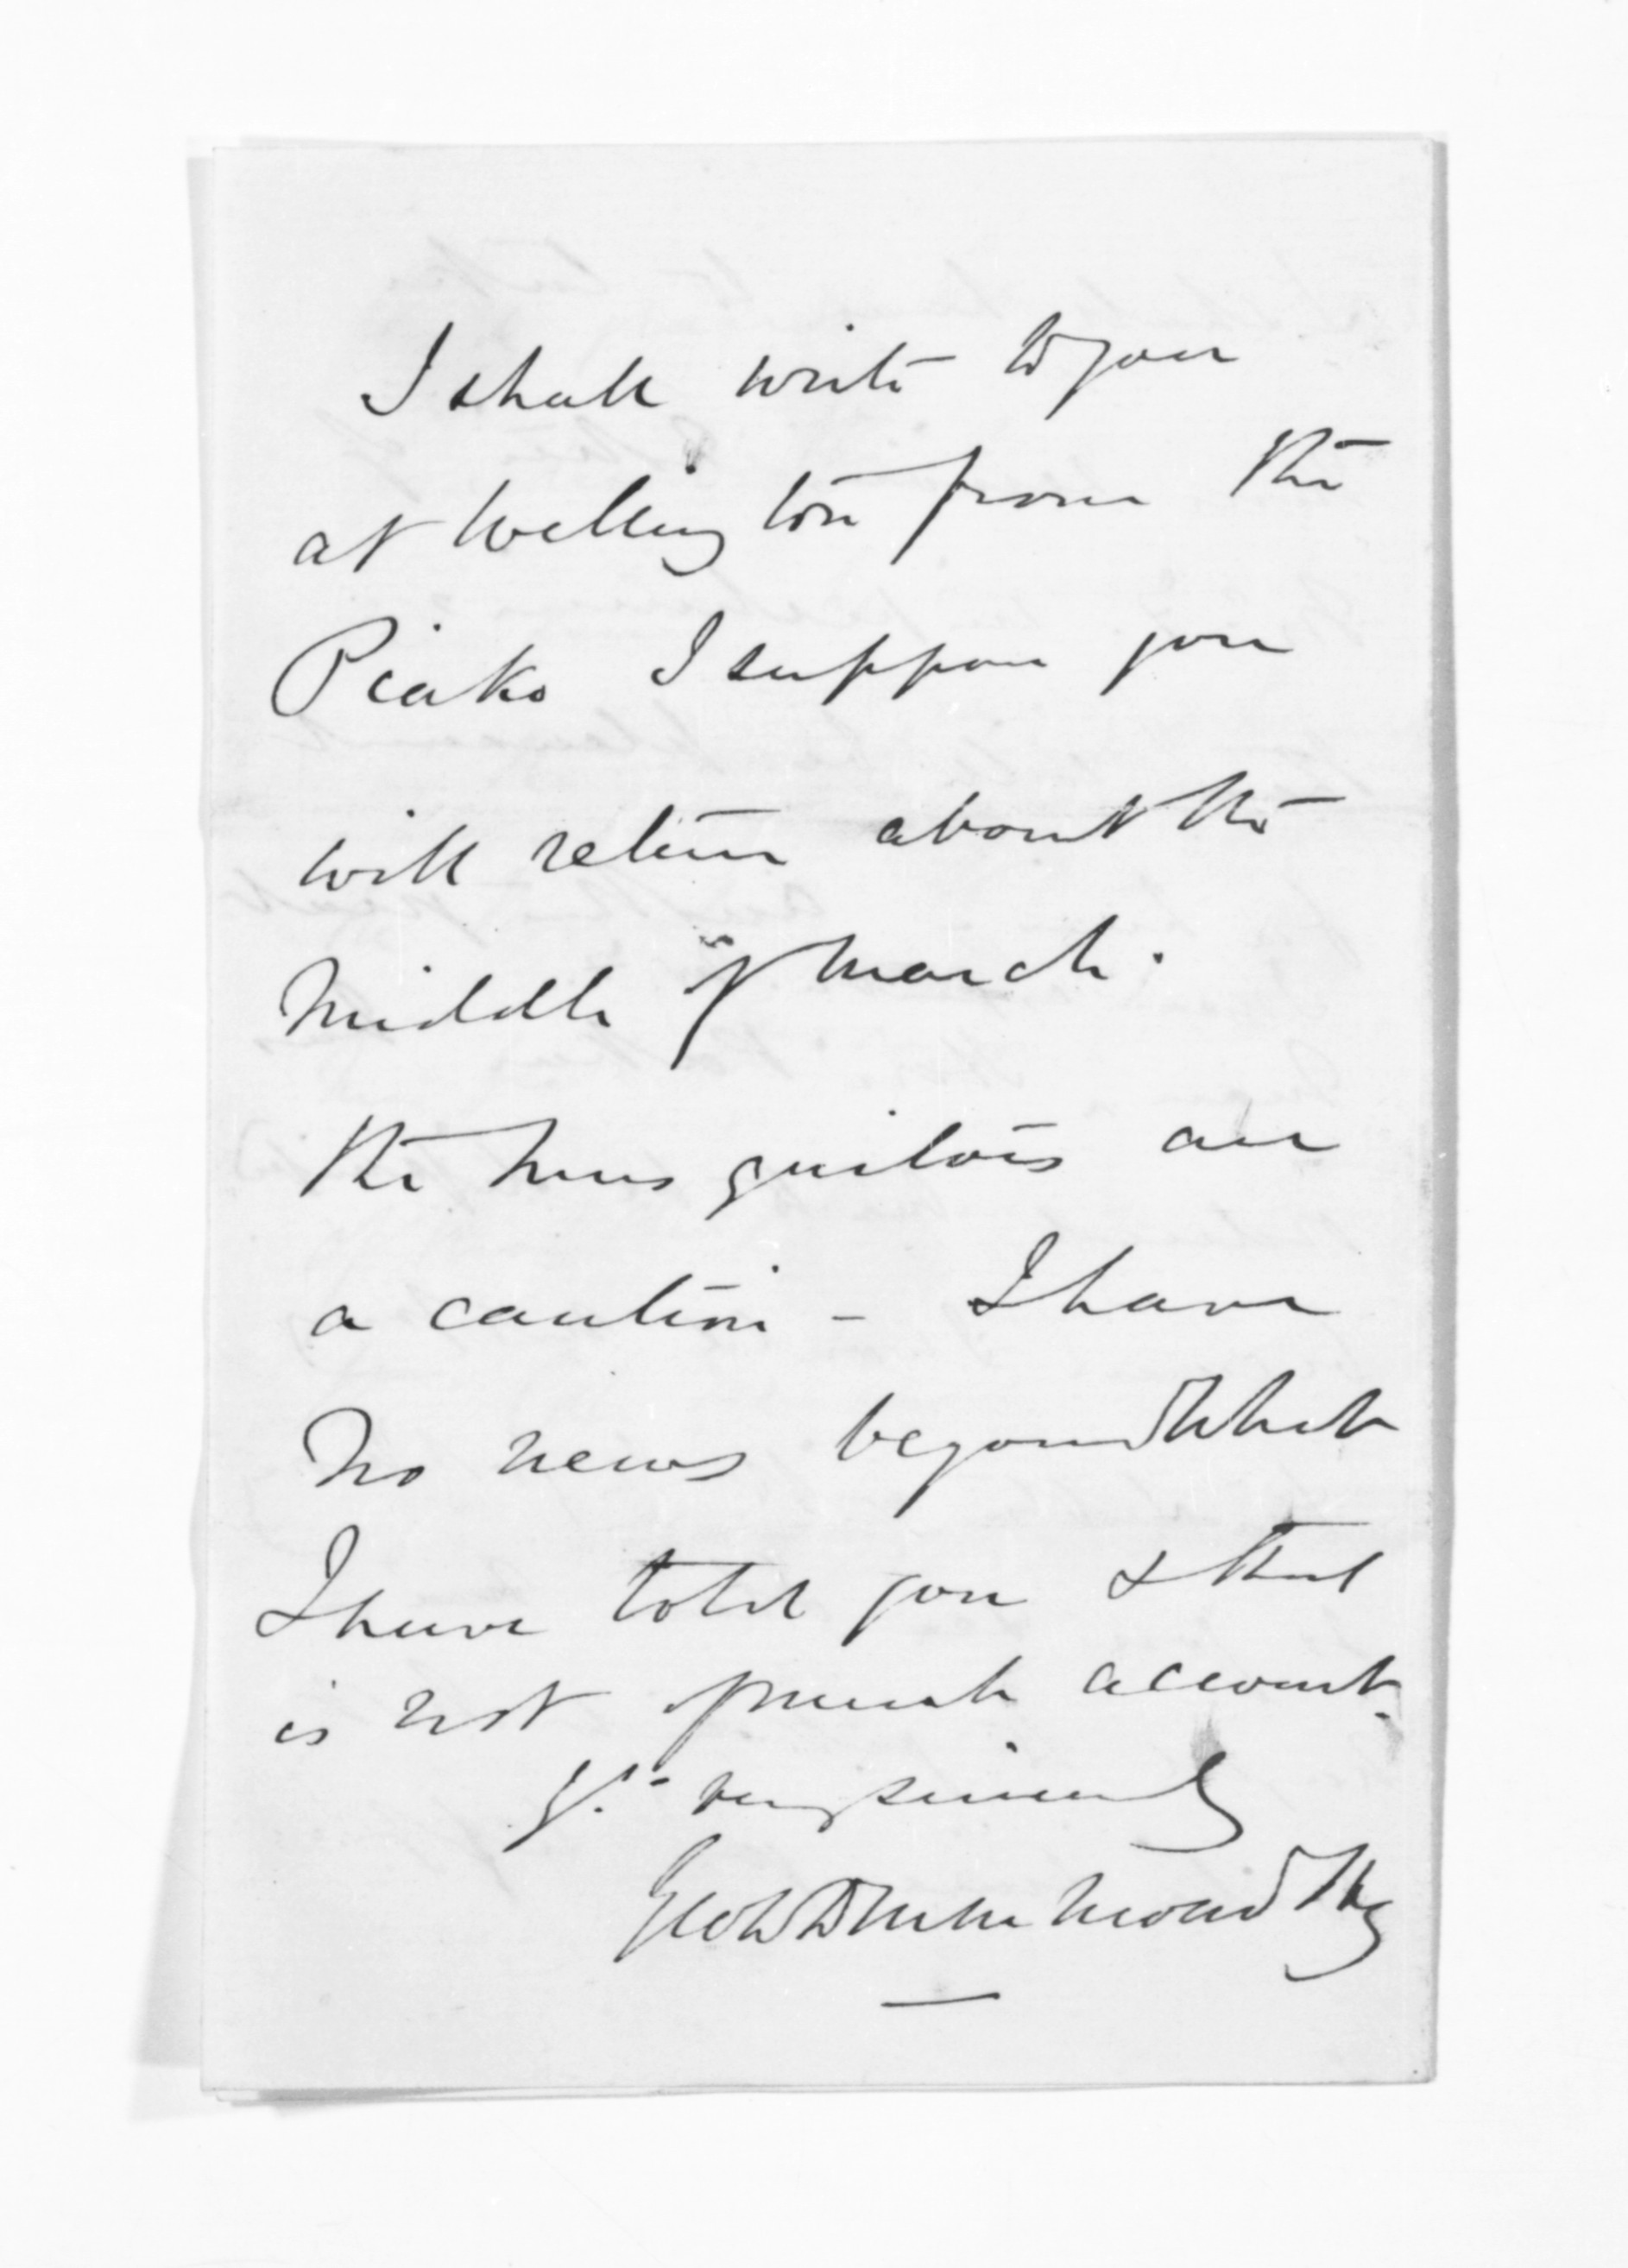 I shall write to you
at Wellington from the
Piako I suppose you
will return about the
Middle of March.
the Musquitoes are
a caution - I have
No news beyond what
I have told you & that
is not of much account.
Yr. very sincerely
Geo W Drummond Hay